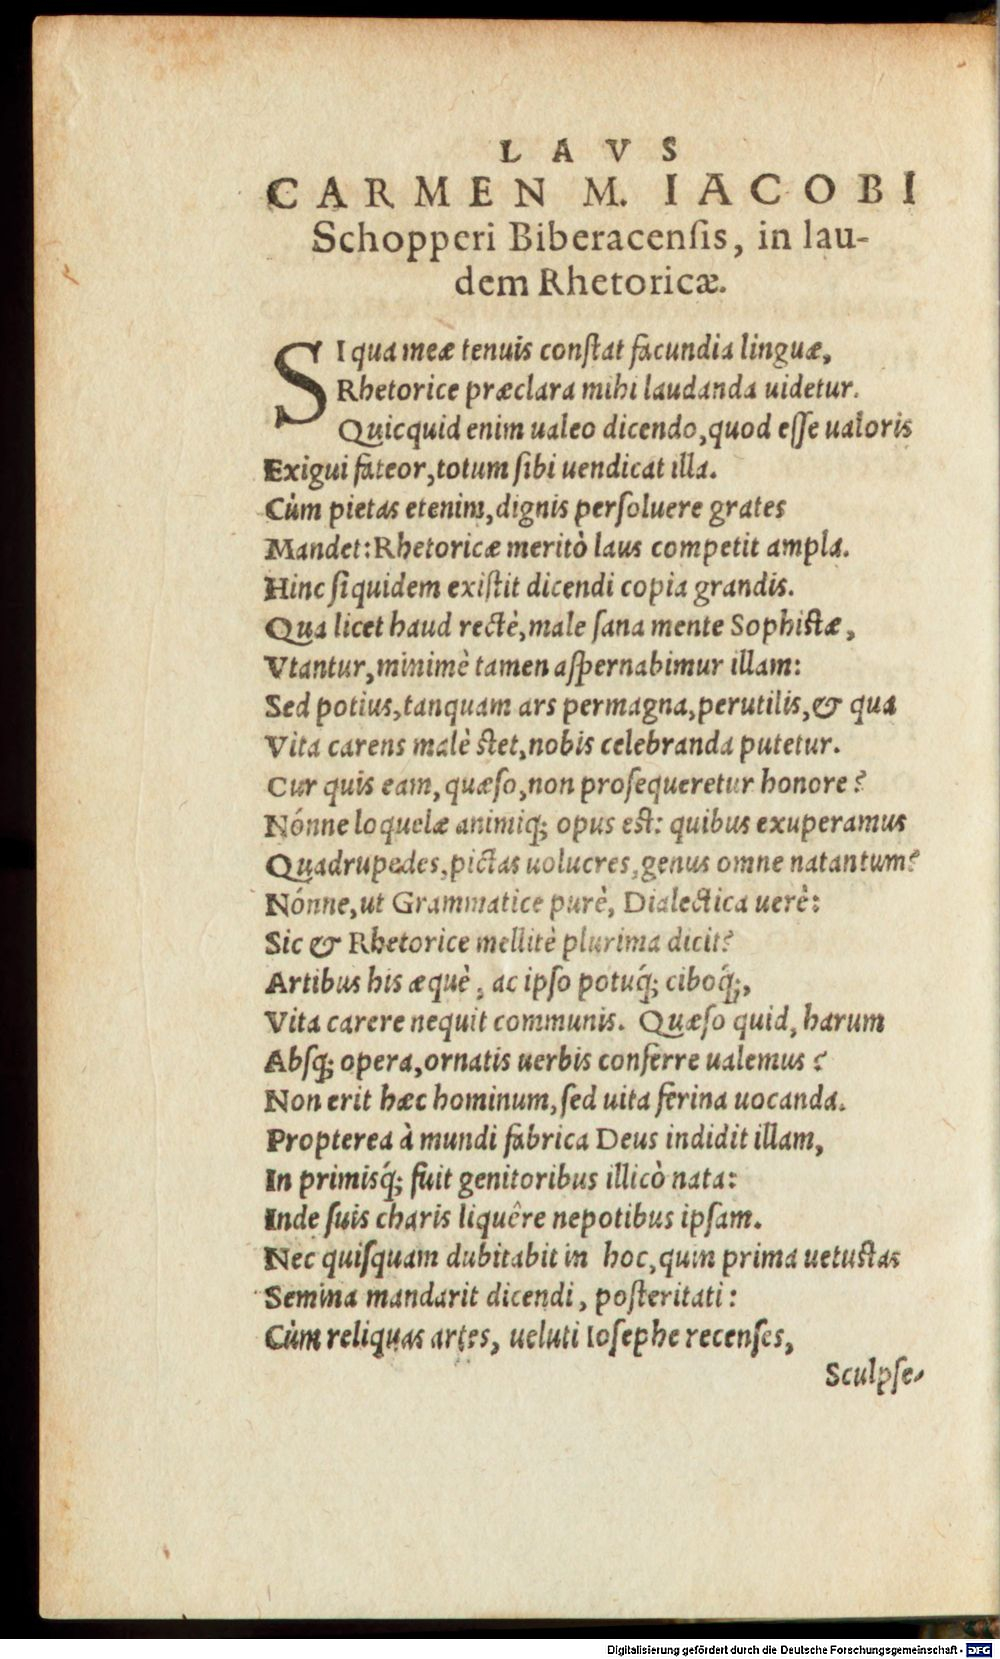 LAVS
CARMEN M. IACOBI
Schopperi Biberacenſis, in lau-
dem Rhetoricæ.
SI qua meæ tenuis conſtat facundia linguæ,
Rhetorice præclara mihi laudanda uidetur.
Quicquid enim ualeo dicendo, quod eſſe ualoris
Exigui fateor, totum ſibi uendicat illa.
Cùm pietas etenim, dignis perſoluere grates
Mandet: Rhetoricæ meritò laus competit ampla.
Hinc ſiquidem exiſtit dicendi copia grandis.
Qua licet haud rectè, male ſana mente Sophiſtæ,
Vtantur, minimè tamen aſpernabimur illam:
Sed potius, tanquam ars permagna, perutilis, & qua
Vita carens malè ſtet, nobis celebranda putetur.
Cur quis eam, quæſo, non proſequeretur honore?
Nónne loquelæ animiq́; opus eſt: quibus exuperamus
Quadrupedes, pictas uolucres, genus omne natantum?
Nónne, ut Grammatice purè, Dialectica uerè:
Sic & Rhetorice mellitè plurima dicit?
Artibus his æquè, ac ipſo potuq́; ciboq́;,
Vita carere nequit communis. Quæſo quid, harum
Abſq; opera, ornatis uerbis conferre ualemus?
Non erit hæc hominum, ſed uita ferina uocanda.
Propterea à mundi fabrica Deus indidit illam,
In primisq́; fuit genitoribus illicò nata:
Inde ſuis charis liquêre nepotibus ipſam.
Nec quiſquam dubitabit in hoc, quin prima uetuſtas
Semina mandarit dicendi, poſteritati:
Cùm reliquas artes, ueluti Ioſephe recenſes,
Sculpſe-
Digitalisierung gefördert durch die Deutsche Forschungsgemeinschaft - DFG